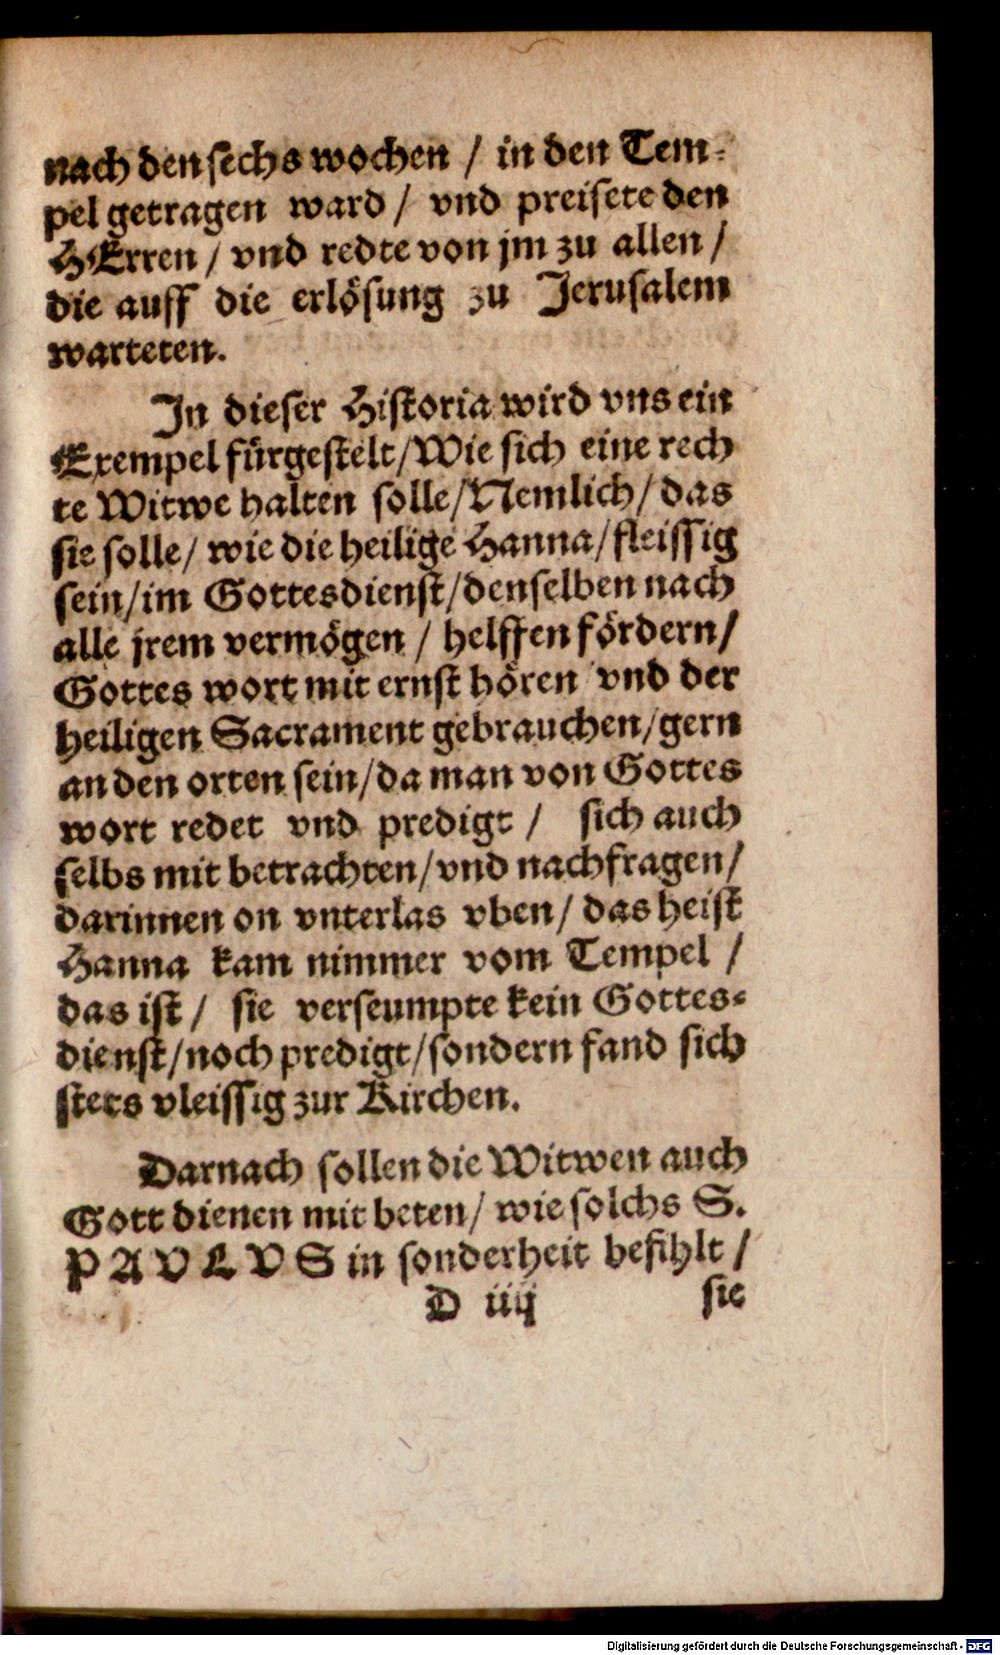 nach den sechs wochen / in den Tem-
pel getragen ward / vnd preisete den
HErren / vnd redte von jm zu allen /
die auff die erlösung zu Jerusalem
warteten.
In dieser Historia wird vns ein
Exempel fürgestelt / Wie sich eine rech
te Witwe halten solle / Nemlich / das
sie solle / wie die heilige Hanna / fleissig
sein / im Gottesdienst / denselben nach
alle jrem vermögen / helffen fördern /
Gottes wort mit ernst hören vnd der
heiligen Sacrament gebrauchen / gern
an den orten sein / da man von Gottes
wort redet vnd predigt / sich auch
selbs mit betrachten / vnd nachfragen /
darinnen on vnterlas vben / das heist
Hanna kam nimmer vom Tempel /
das ist / sie verseumpte kein Gottes-
dienst / noch predigt / sondern fand sich
stets vleissig zur Kirchen.
Darnach sollen die Witwen auch
Gott dienen mit beten / wie solchs S.
PAVLVS in sonderheit befihlt /
D iiij sie
Digitalisierung gefördert durch die Deutsche Forschungsgemeinschaft - DFG